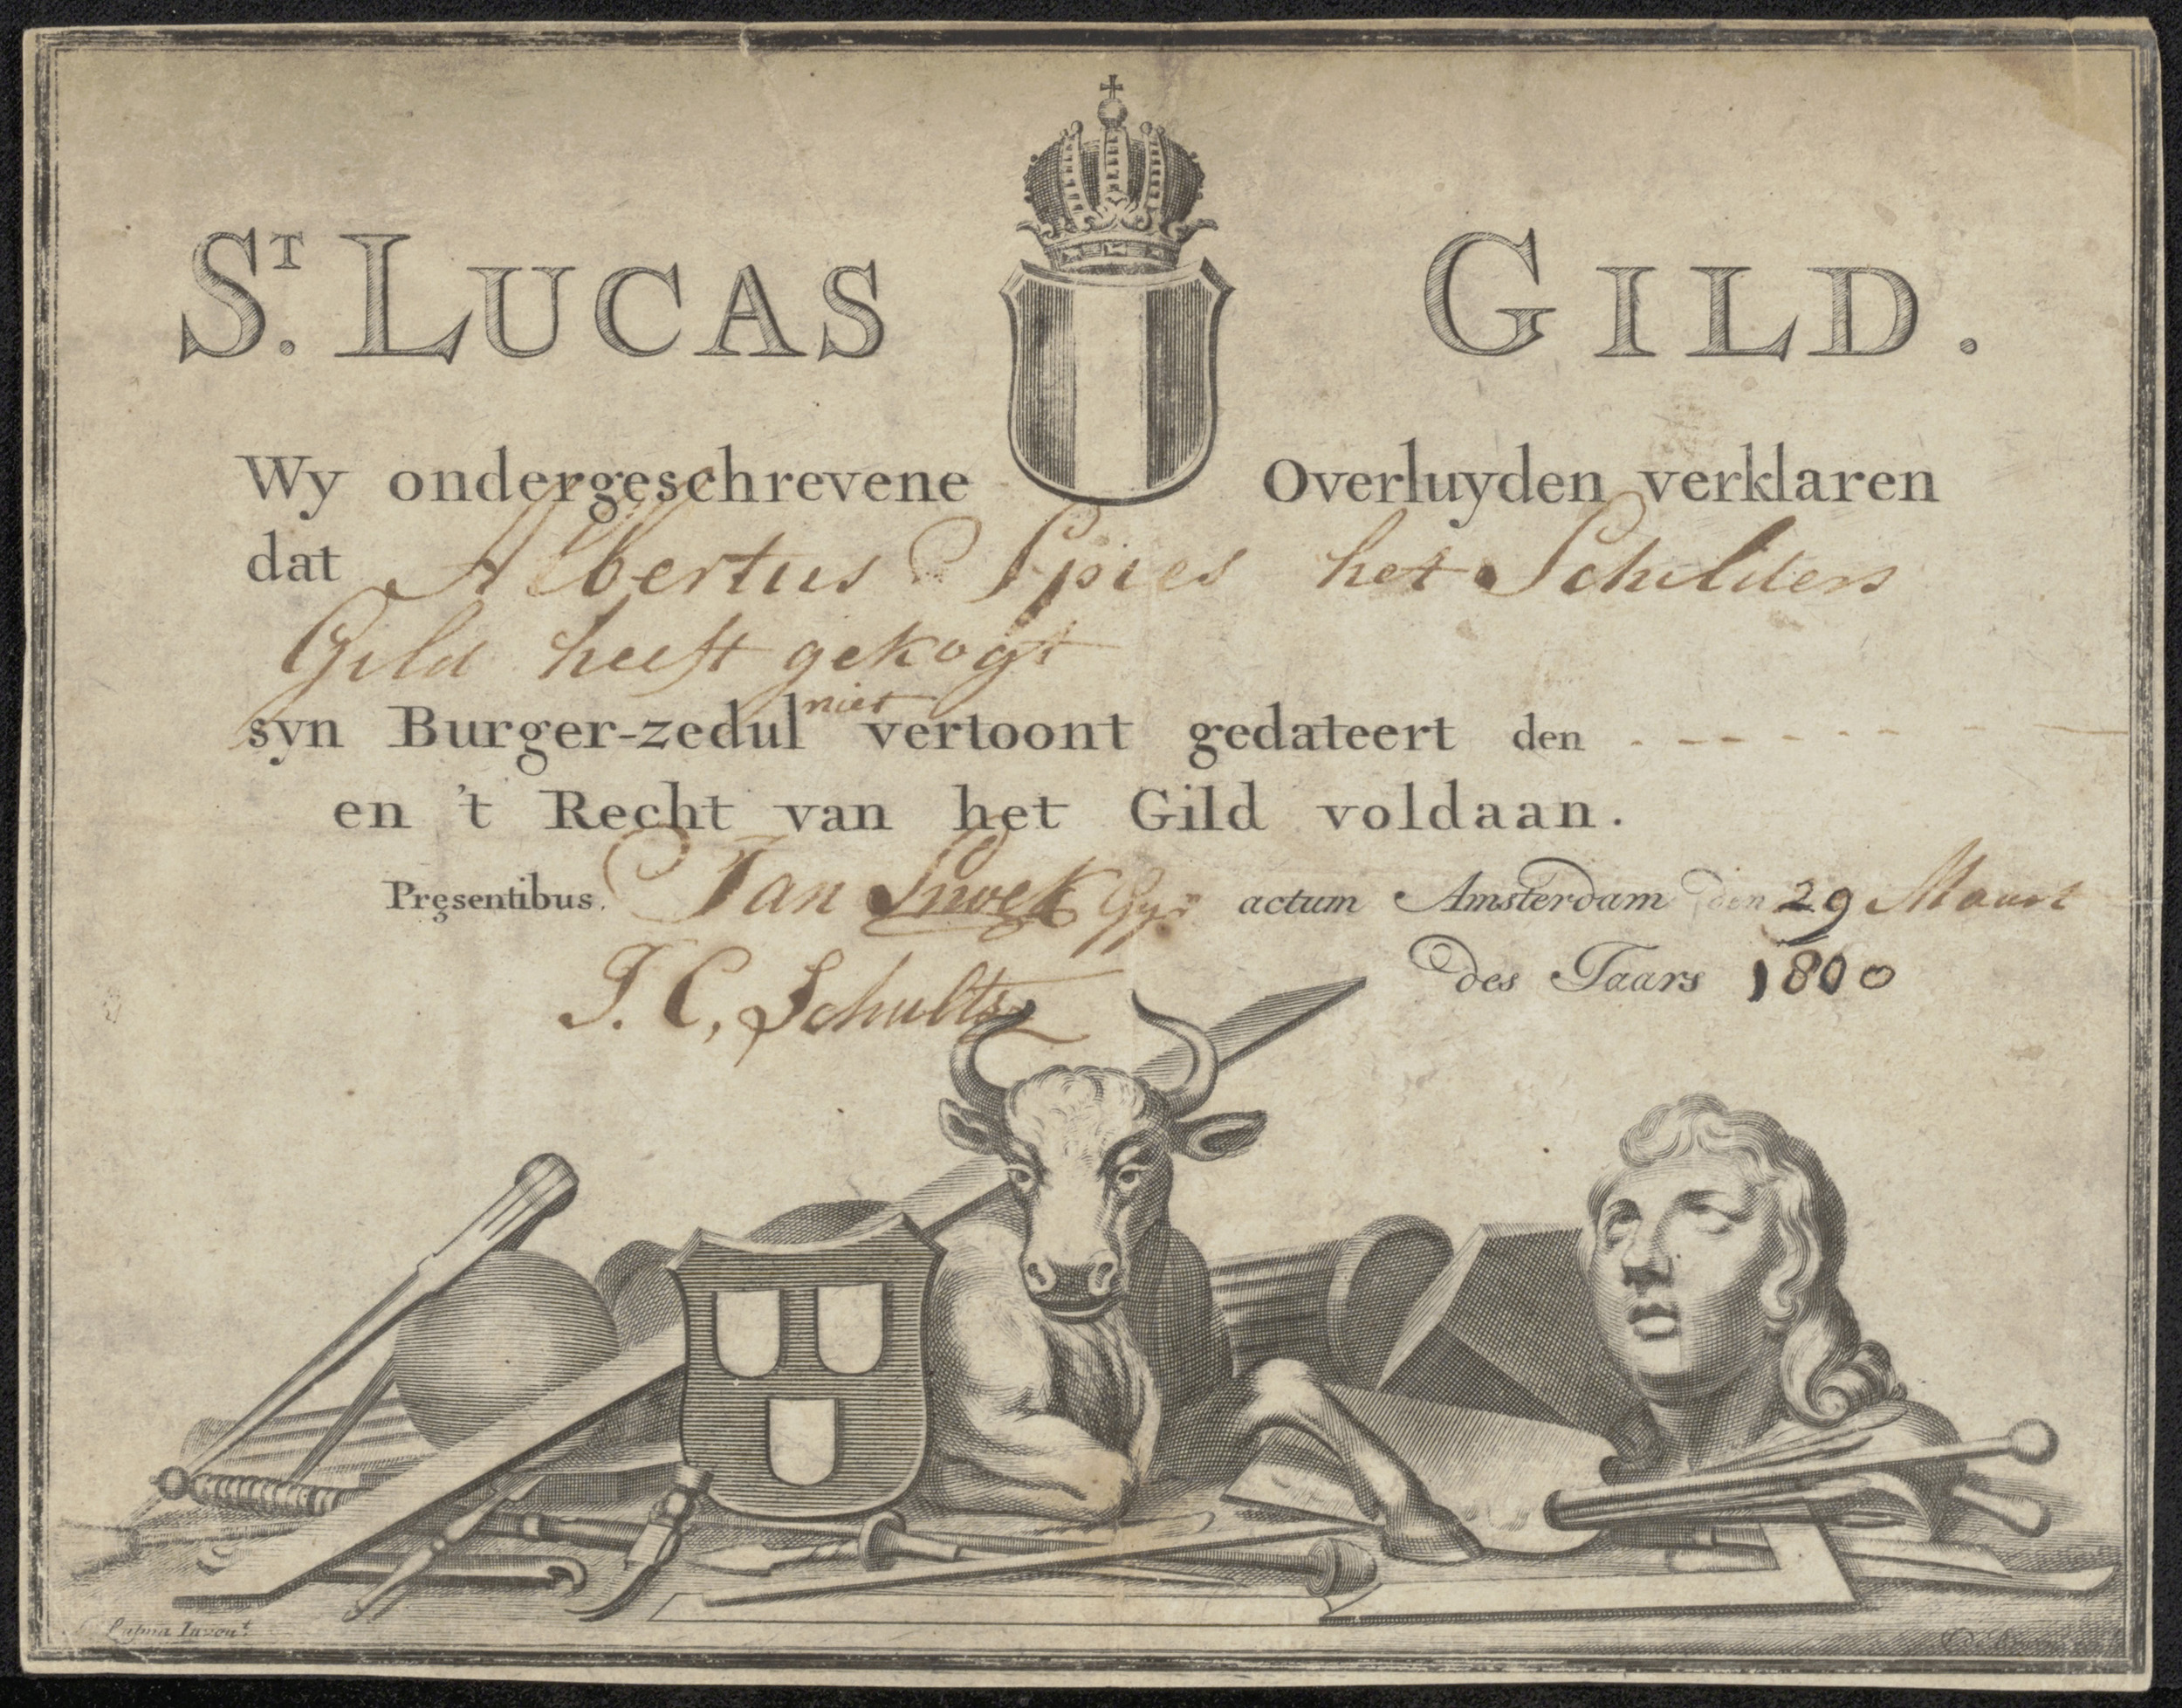 ST. LUCAS GILD.
Wy ondergeschrevene Overluyden verklaren
dat Albertus Spies het Schilders
Gild heeft gekogt
syn Burger-zedul niet vertoont gedateert den - - - - - - - -
en 't Recht van het Gild voldaan.
Præsentibus. Jan Snoek actum Amsterdam den 29 Maart
J. C, Schultz des Jaars 1800
Inven.t